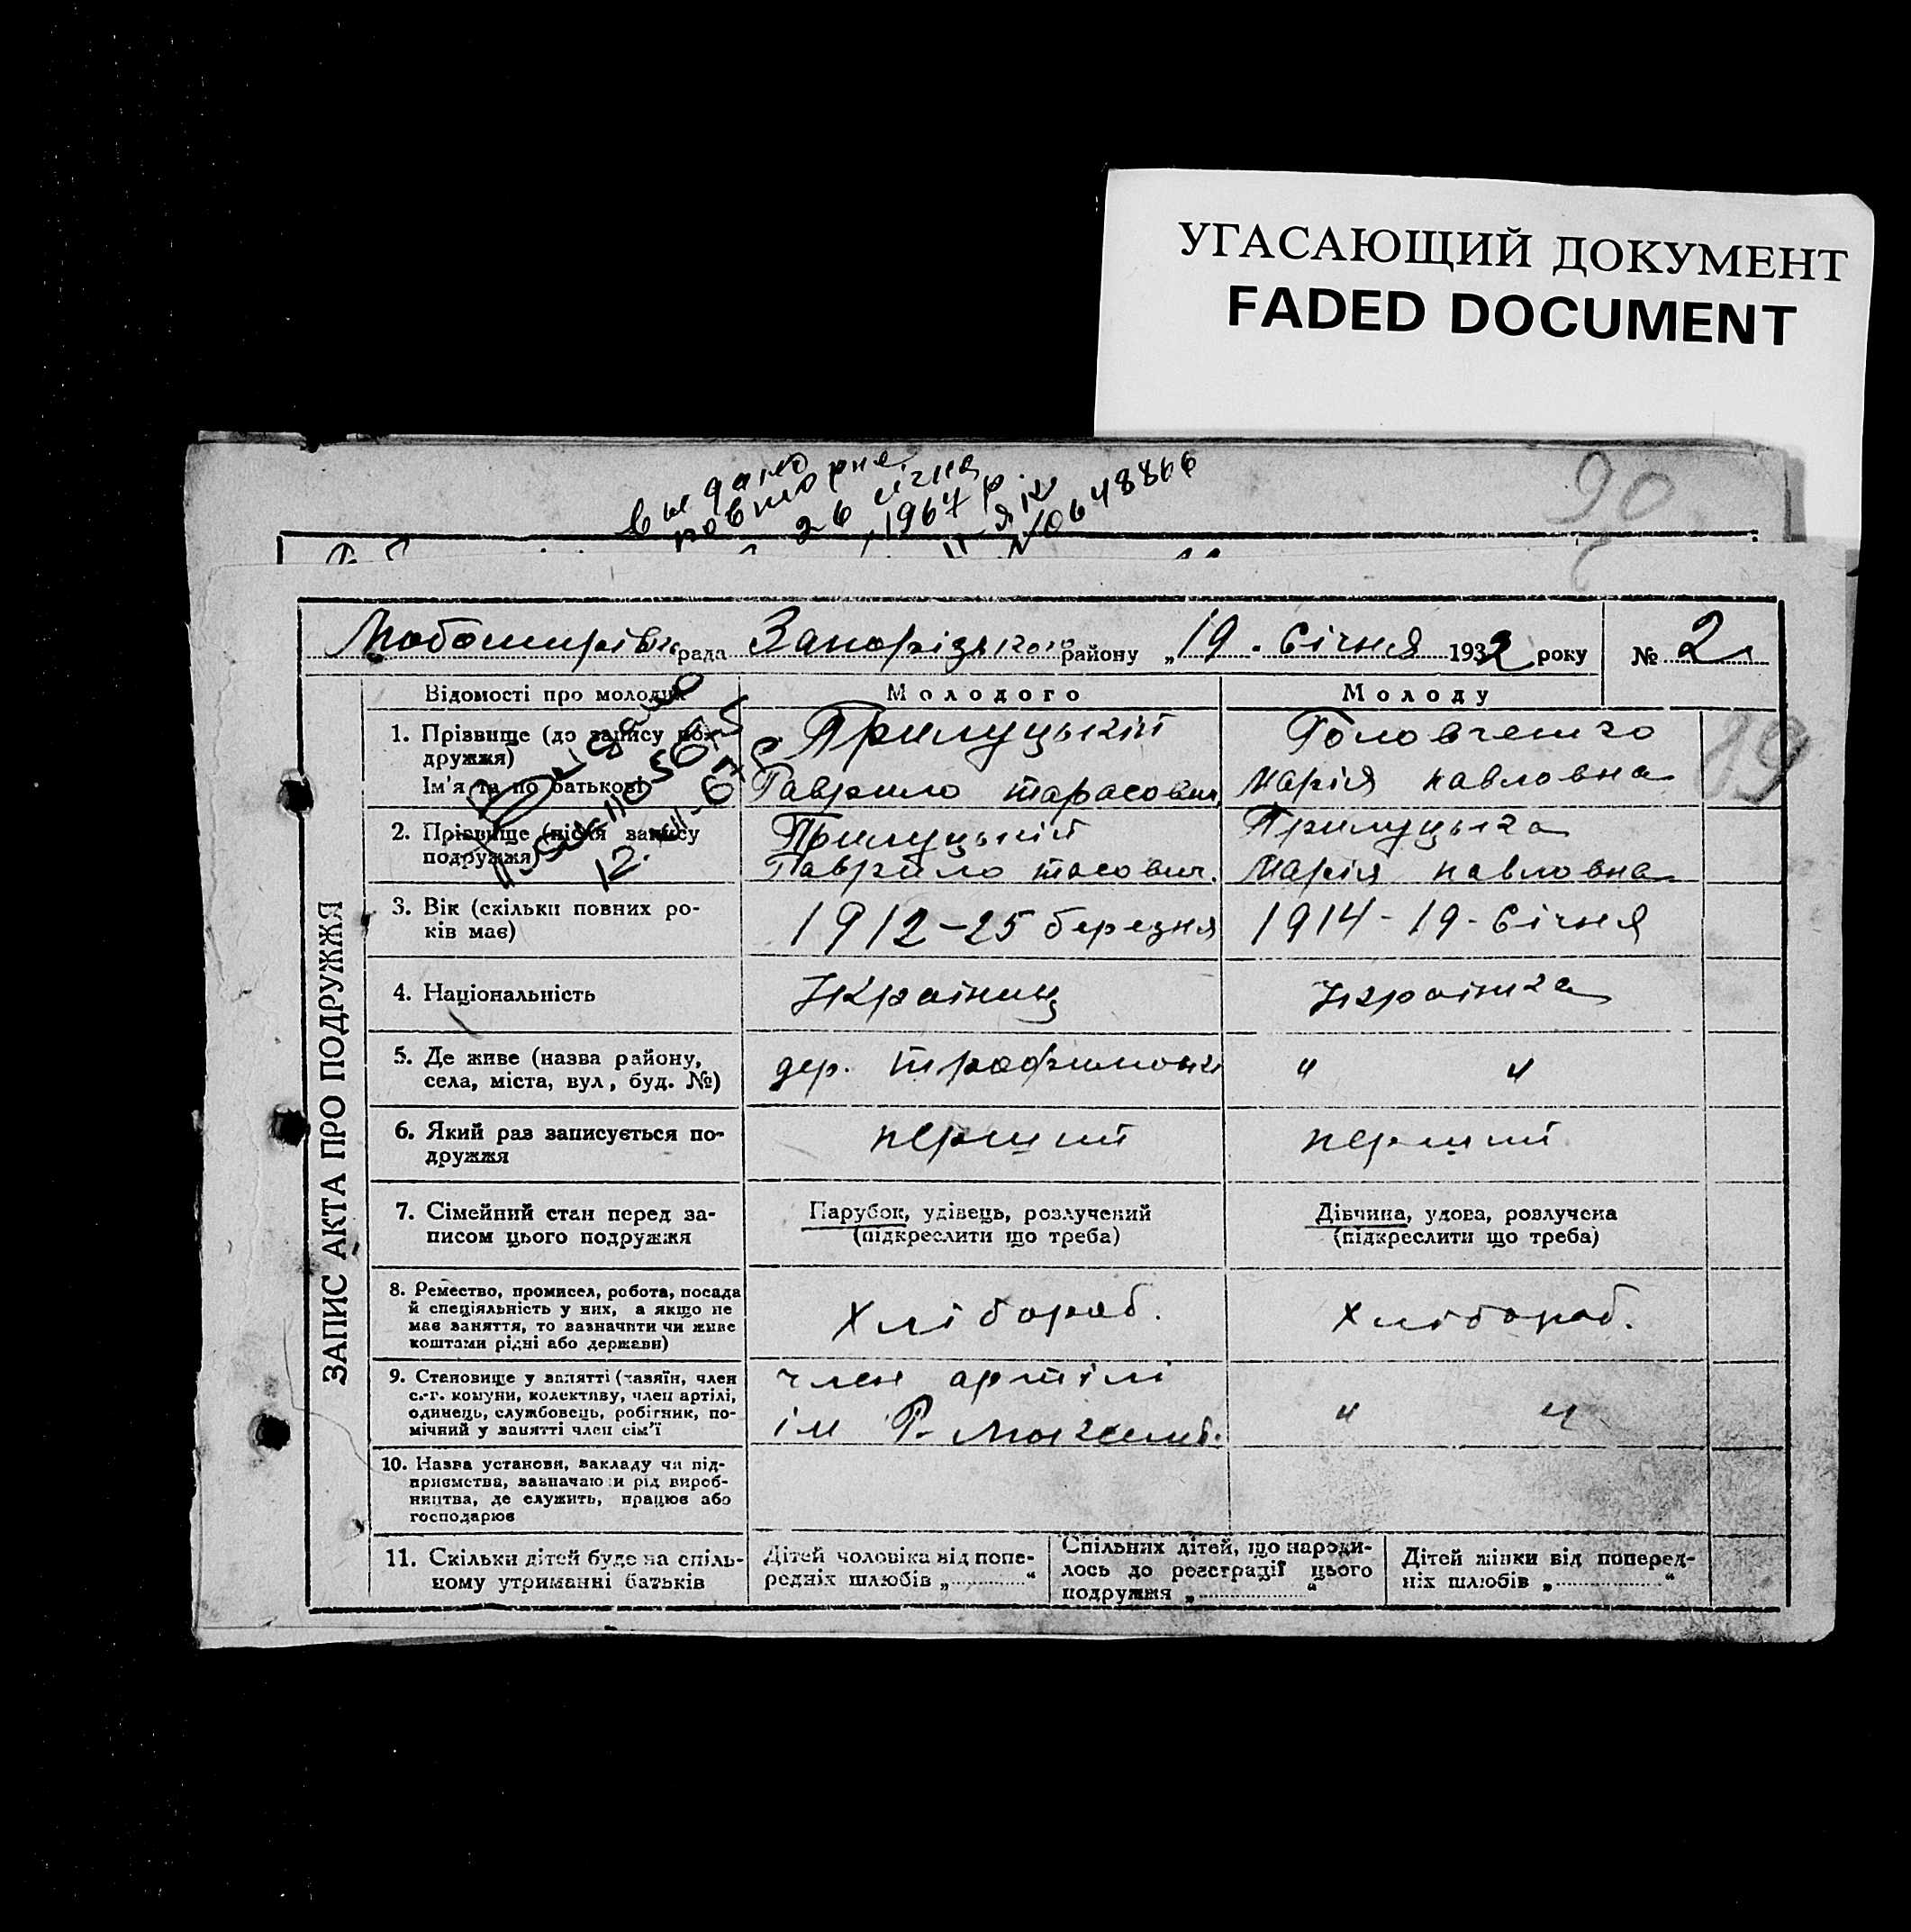 УГАСАЮЩИЙ ДОКУМЕНТ
FADED DOCUMENT
90
видано
повторне
26 січня
1967 р.
№ 0648866
рада Запорізького району „19. Січня 1932 року № 2
Відомості про молодих
Молодого
Молоду
89
ЗАПИС АКТА ПРО ПОДРУЖЖЯ
1. Прізвище (до запису по-
дружжя)
Ім'я та по батькові
Прилуцький
Гаврило тарасович
Головченко
Марія павловна
2. Прізвище (після запису
подружжя)
Прилуцький
Гаврило тасович.
Прилуцька
Марія павловна
3. Вік (скільки повних ро-
ків має)
1912-25 березня
1914-19-Січня
4. Національність
Українец
Українка
5. Де живе (назва району,
села, міста, вул, буд. №)
дер.
" "
6. Який раз записується по-
дружжя
перший
перший
7. Сімейний стан перед за-
писом цього подружжя
Парубок, удівець, розлучений
(підкреслити що треба)
Дівчина, удова, розлучена
(підкреслити що треба)
8. Ремество, промисел, робота, посада
й спеціяльність у них, а якщо не
має заняття, то зазначити чи живе
коштами рідні або держави)
Хлібороб.
Хлібороб.
9. Становище у занятті (хазяїн, член
с.-г. комуни, колективу, член артілі,
одинець, службовець, робітник, по-
мічний у занятті член сім'ї
член артілі
ім Р.
" "
10. Назва установи, закладу чи під-
приємства, зазначаючи рід вироб-
ництва, де служить, працює або
господарює
11. Скільки дітей буде на спіль-
ному утриманні батьків
Дітей чоловіка від попе-
редніх шлюбів „ “
Спільних дітей, що народи-
лось до реєстрації цього
подружжя „ “
Дітей жінки від поперед-
ніх шлюбів „ “